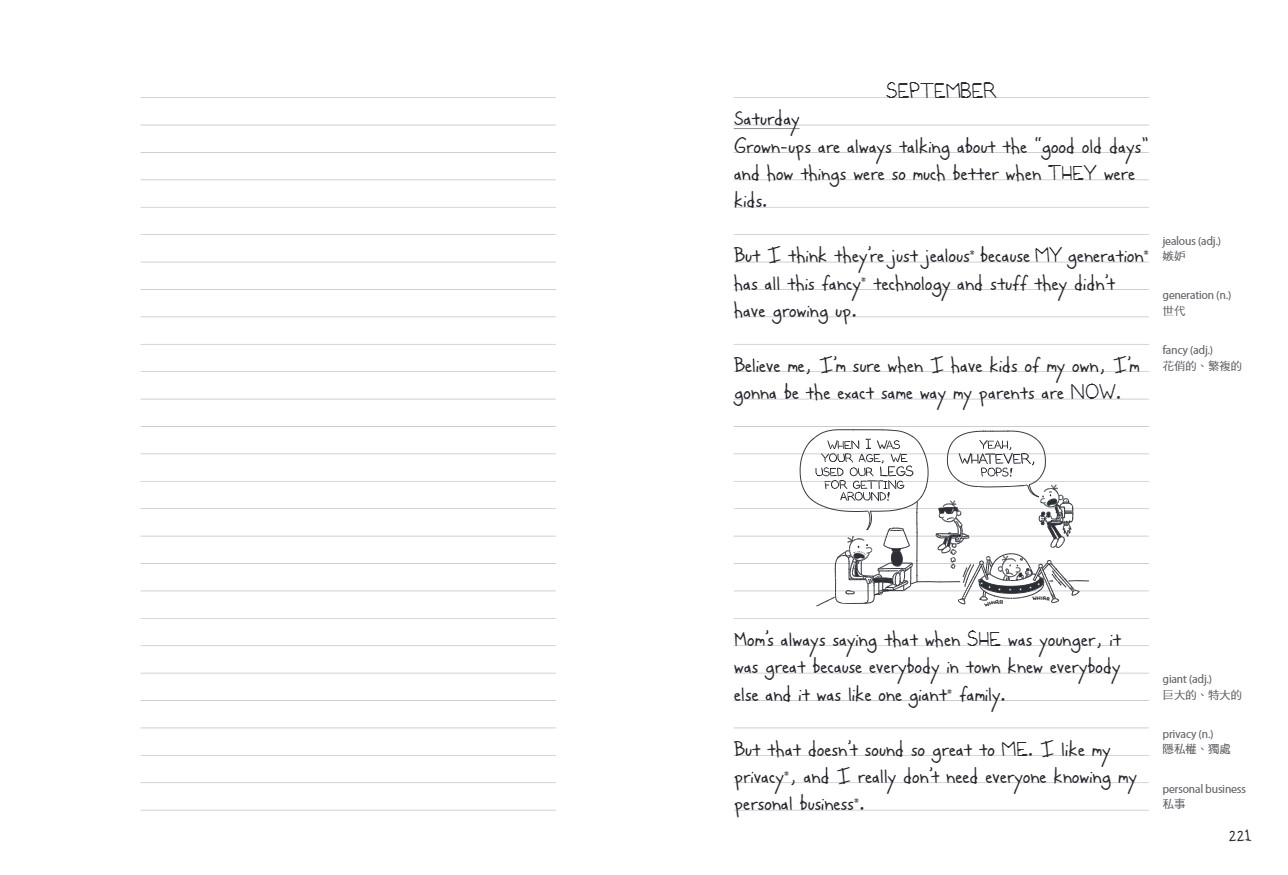 SEPTEMBER
Saturday
Grown-ups are always talking about the “good old days”
and how things were so much better when THEY were
kids.
But I think they’re just jealous* because MY generation*
has all this fancy* technology and stuff they didn’t
have growing up.
Believe me, I’m sure when I have kids of my own, I’m
gonna be the exact same way my parents are NOW.
WHEN I WAS
YOUR AGE, WE
USED OUR LEGS
FOR GETTING
AROUND!
YEAH,
WHATEVER,
POPS!
WHIRR
WHIRR
Mom’s always saying that when SHE was younger, it
was great because everybody in town knew everybody
else and it was like one giant* family.
But that doesn’t sound so great to ME. I like my
privacy*, and I really don’t need everyone knowing my
personal business*.
jealous (adj.)
嫉妒
generation (n.)
世代
fancy (adj.)
花俏的、繁複的
giant (adj.)
巨大的、特大的
privacy (n.)
隱私權、獨處
personal business
私事
221